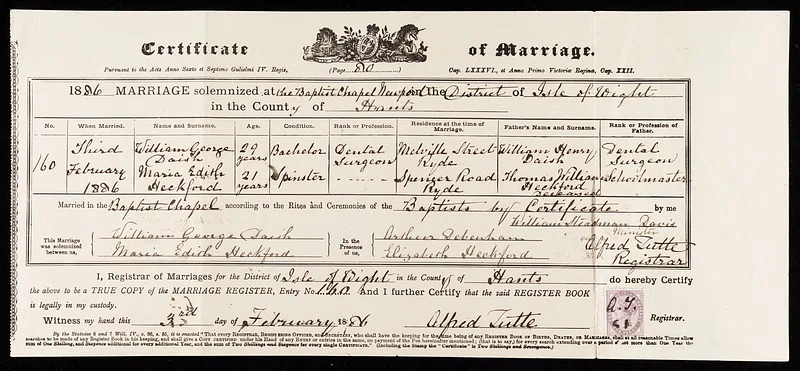 Certificate of Marriage.
Pursuant to the Acts Anno Sexto et Septimo Gulielmi IV. Regis, (Page 80) Cap. LXXXVI., et Anno Primo Victoriæ Reginæ, Cap. XXII.
1886 MARRIAGE solemnized at the Baptist Chapel Newport in the District of Isle of Wight
in the County of Hants
No. When Married. Name and Surname. Age. Condition. Rank or Profession. Residence at the time of Marriage. Father's Name and Surname. Rank or Profession of Father.
160 Third February 1886
William George Daish 29 years Bachelor Dental Surgeon Melville Street Ryde William Henry Daish Dental Surgeon
Maria Edith Heckford 21 years Spinster Spencer Road Ryde Thomas William Heckford deceased Schoolmaster
Married in the Baptist Chapel according to the Rites and Ceremonies of the Baptists by Certificate by me
William Steadman Davis
Minister
This Marriage was solemnized between us,
William George Daish
Maria Edith Heckford
In the Presence of us,
Arthur Debenham
Elizabeth Heckford
Alfred Tutte
Registrar
I, Registrar of Marriages for the District of Isle of Wight in the County of Hants do hereby Certify
the above to be a TRUE COPY of the MARRIAGE REGISTER, Entry No. 160 And I further Certify that the said REGISTER BOOK
is legally in my custody.
Witness my hand this 3rd day of February 1886 Alfred Tutte Registrar.
A.T.
By the Statute 6 and 7 Will. IV., c. 86, s. 35, it is enacted "That every RECTOR, VICAR, CURATE, REGISTRAR, and SECRETARY, who shall have the keeping for the time being of any REGISTER BOOK OF BIRTHS, DEATHS, OR MARRIAGES, shall at all reasonable Times allow
searches to be made of any Register Book in his keeping, and shall give a COPY CERTIFIED under his Hand of any ENTRY or ENTRIES in the same, on payment of the Fee hereinafter mentioned; (that is to say,) for every search extending over a period not more than One Year the
sum of One Shilling, and Sixpence additional for every additional Year, and the Sum of Two Shillings and Sixpence for every single CERTIFICATE." (Including the Stamp the "Certificate" is Two Shillings and Sevenpence.)